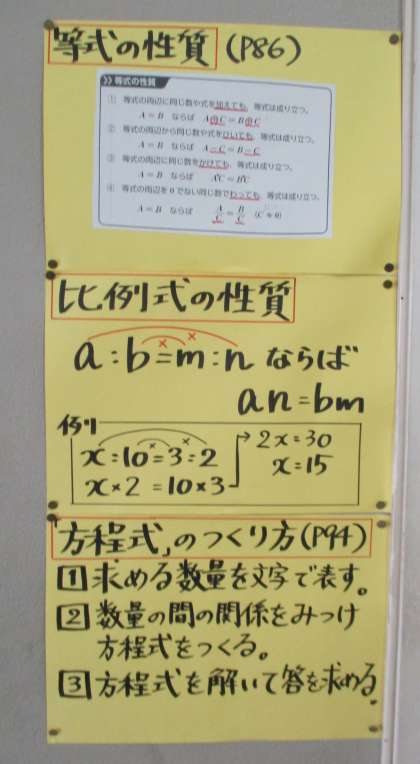 等式の性質 (P86)
等式の性質
① 等式の両辺に同じ数や式を加えても、等式は成り立つ。
A=B ならば A+C=B+C
② 等式の両辺から同じ数や式をひいても、等式は成り立つ。
A=B ならば A-C=B-C
③ 等式の両辺に同じ数をかけても、等式は成り立つ。
A=B ならば AC=BC
④ 等式の両辺を0でない同じ数でわっても、等式は成り立つ。
A=B ならば A/C=B/C (C≠0)
比例式の性質
a:b=m:n ならば
an=bm
例
x:10=3:2
x×2=10×3
2x=30
x=15
「方程式」のつくり方(P94)
1 求める数量を文字で表す。
2 数量の間の関係をみつけ
方程式をつくる。
3 方程式を解いて答を求める。